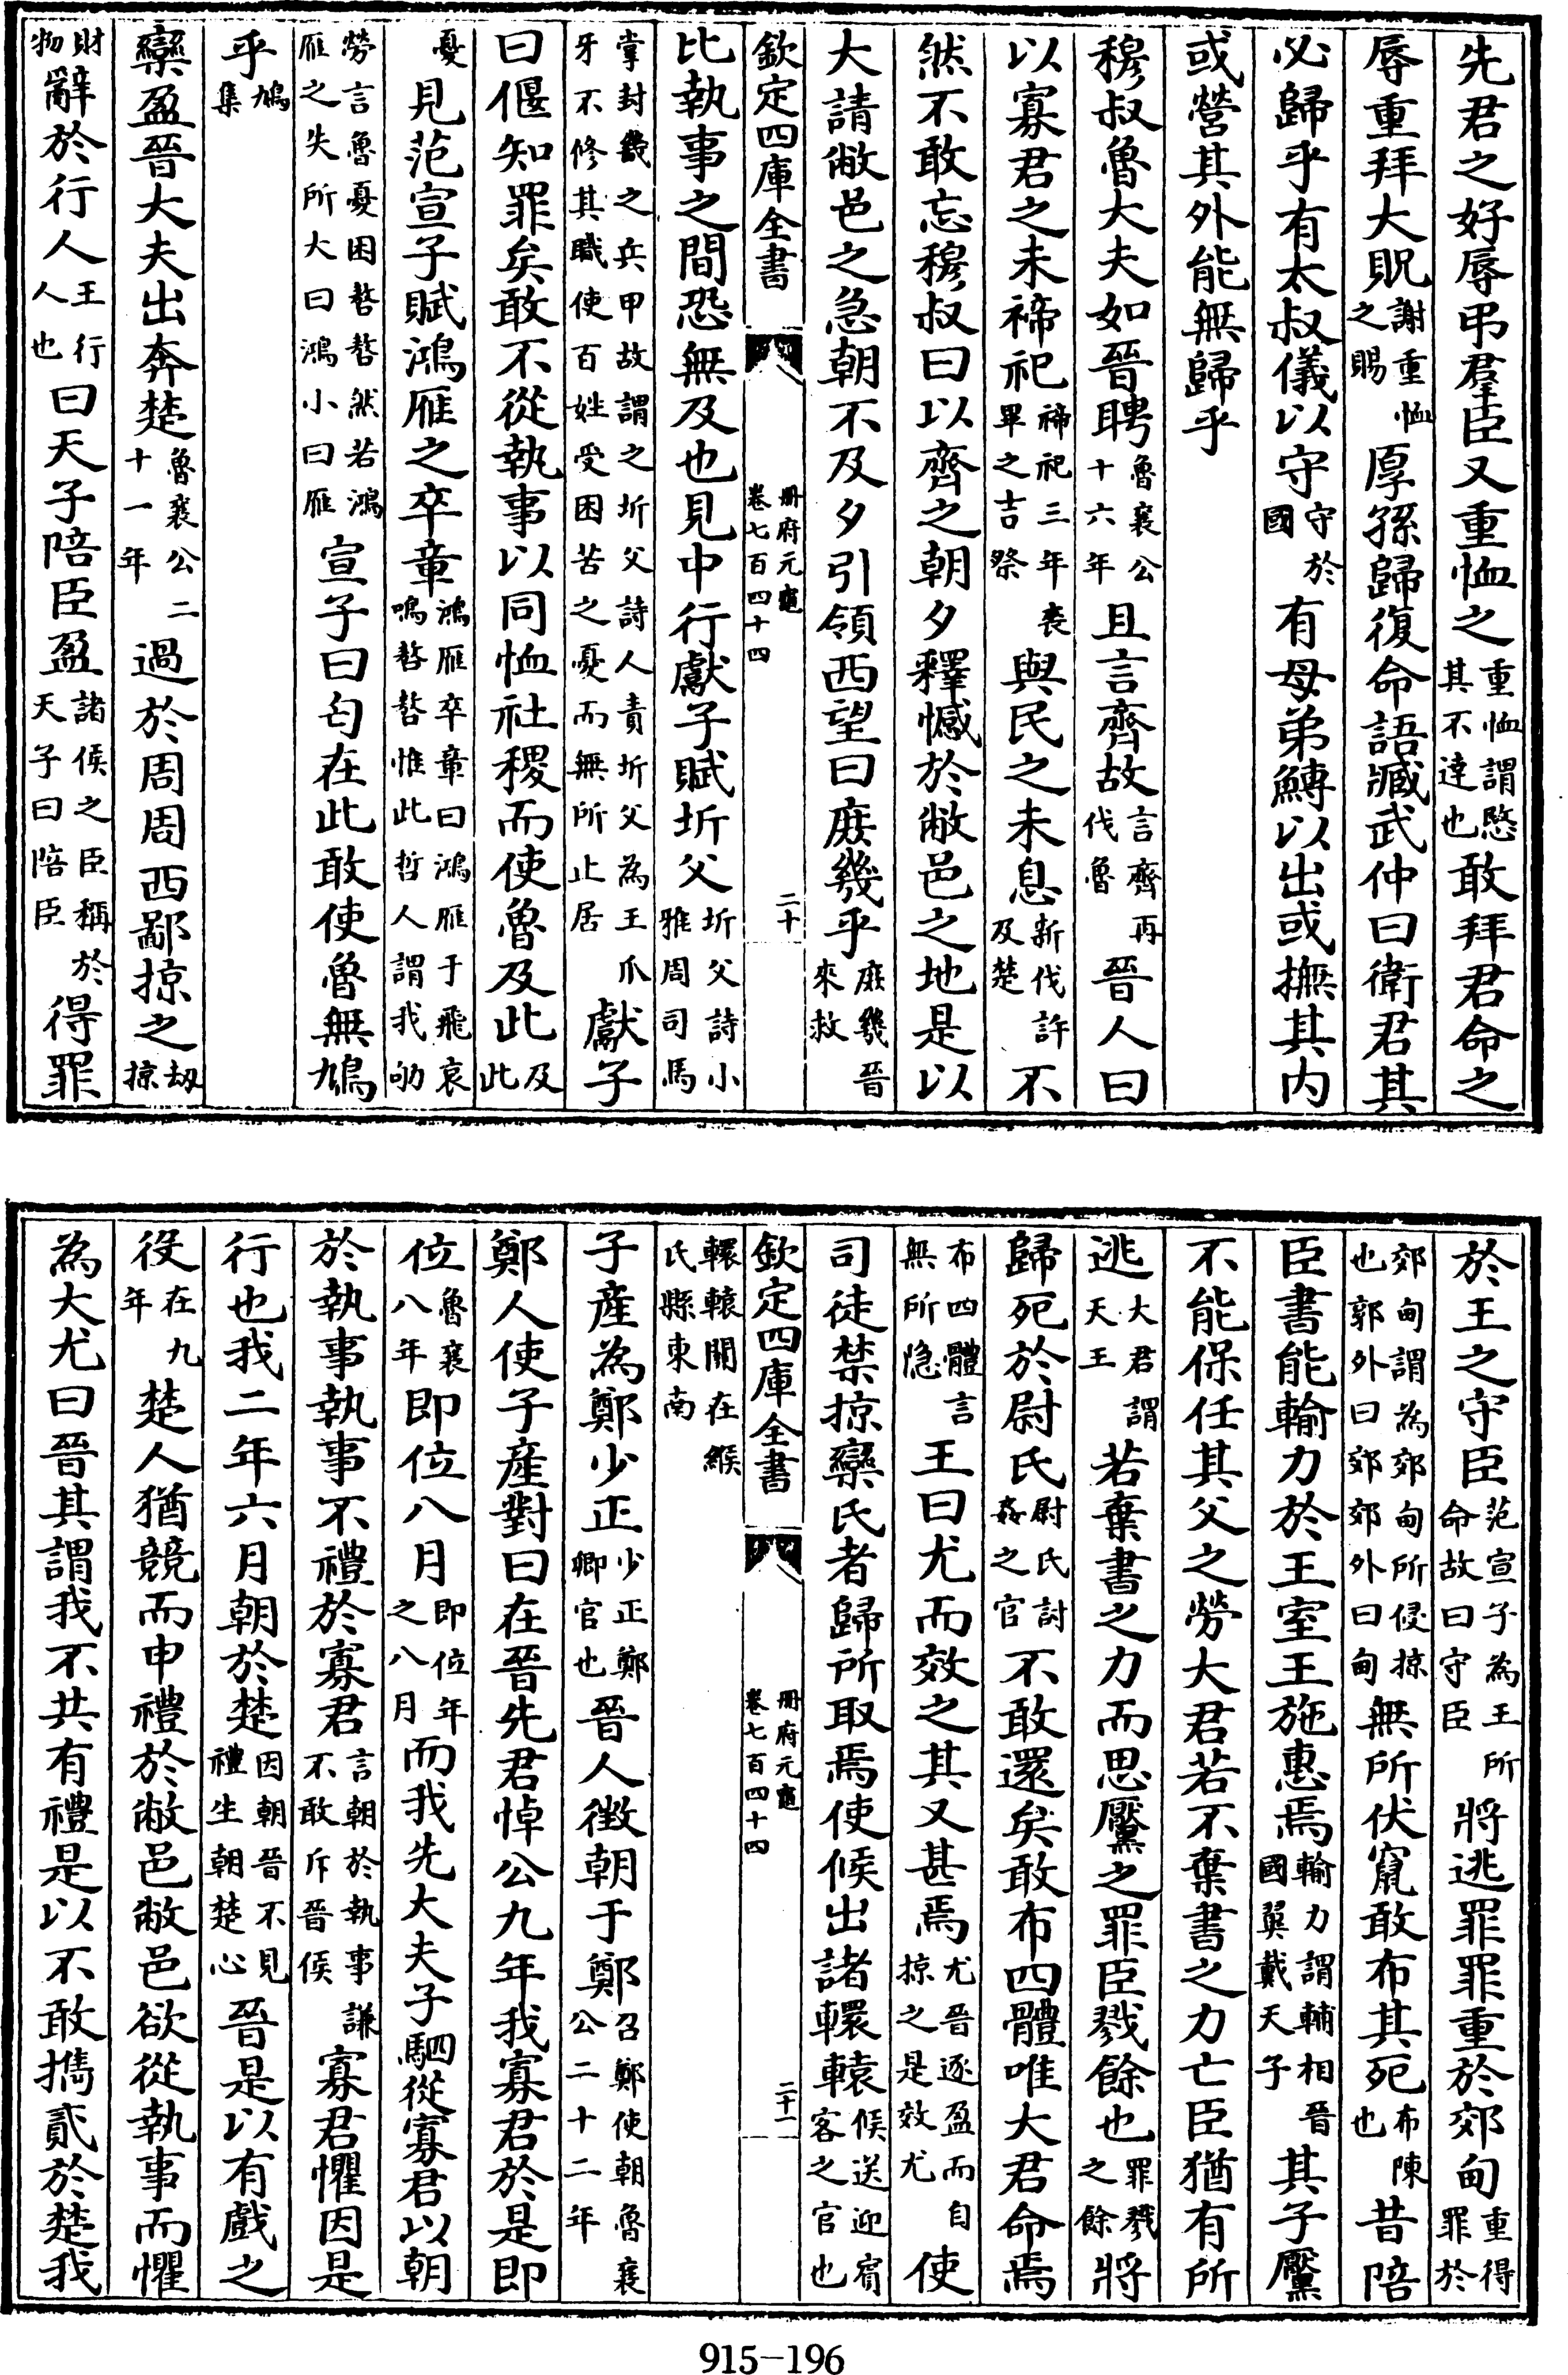 先君之好辱弔羣臣又重恤之重恤謂愍其不達也敢拜君命之
辱重拜大貺謝重恤之賜厚孫歸復命語臧武仲曰衛君其
必歸乎有太叔儀以守守於國有母弟鱄以出或撫其內
或營其外能無歸乎
穆叔魯大夫如晉聘魯襄公十六年且言齊故言齊再伐魯晉人曰
以寡君之未禘祀禘祀三年喪畢之吉祭與民之未息新伐許及楚不
然不敢忘穆叔曰以齊之朝夕釋憾於敝邑之地是以
大請敝邑之急朝不及夕引領西望曰庶幾乎庶幾晉來救
欽定四庫全書 冊府元龜 卷七百四十四 二十
比執事之間恐無及也見中行獻子賦圻父圻父詩小雅周司馬
掌封畿之兵甲故謂之圻父詩人責圻父為王爪牙不修其職使百姓受困苦之憂而無所止居獻子
曰偃知罪矣敢不從執事以同恤社稷而使魯及此及此
憂見范宣子賦鴻雁之卒章鴻雁卒章曰鴻雁于飛哀鳴嗸嗸惟此哲人謂我劬
勞言魯憂困嗸嗸然若鴻雁之失所大曰鴻小曰雁宣子曰匄在此敢使魯無鳩
乎鳩集
欒盈晉大夫出奔楚魯襄公二十一年過於周周西鄙掠之刼掠
財物辭於行人王行人也曰天子陪臣盈諸侯之臣稱於天子曰陪臣得罪
於王之守臣范宣子為王所命故曰守臣將逃罪罪重於郊甸重得罪於
郊甸謂為郊甸所侵掠也郭外曰郊郊外曰甸無所伏竄敢布其死布陳也昔陪
臣書能輸力於王室王施惠焉輸力謂輔相晉國翼戴天子其子黶
不能保任其父之勞大君若不棄書之力亡臣猶有所
逃大君謂天王若棄書之力而思黶之罪臣戮餘也罪戮之餘將
歸死於尉氏尉氏討姦之官不敢還矣敢布四體唯大君命焉
布四體言無所隐王曰尤而效之其又甚焉尤晉逐盈而自掠之是效尤使
司徒禁掠欒氏者歸所取焉使候出諸轘轅候送迎賓客之官也
欽定四庫全書 冊府元龜 卷七百四十四 二十一
轘轅關在緱氏縣東南
子產為鄭少正少正鄭卿官也晉人徵朝于鄭召鄭使朝魯襄公二十二年
鄭人使子產對曰在晉先君悼公九年我寡君於是即
位魯襄八年即位八月即位年之八月而我先大夫子駟從寡君以朝
於執事執事不禮於寡君言朝於執事謙不敢斥晉侯寡君懼因是
行也我二年六月朝於楚因朝晉不見禮生朝楚心晉是以有戲之
役在九年楚人猶競而申禮於敝邑敝邑欲從執事而懼
為大尤曰晉其謂我不共有禮是以不敢攜貳於楚我
915-196